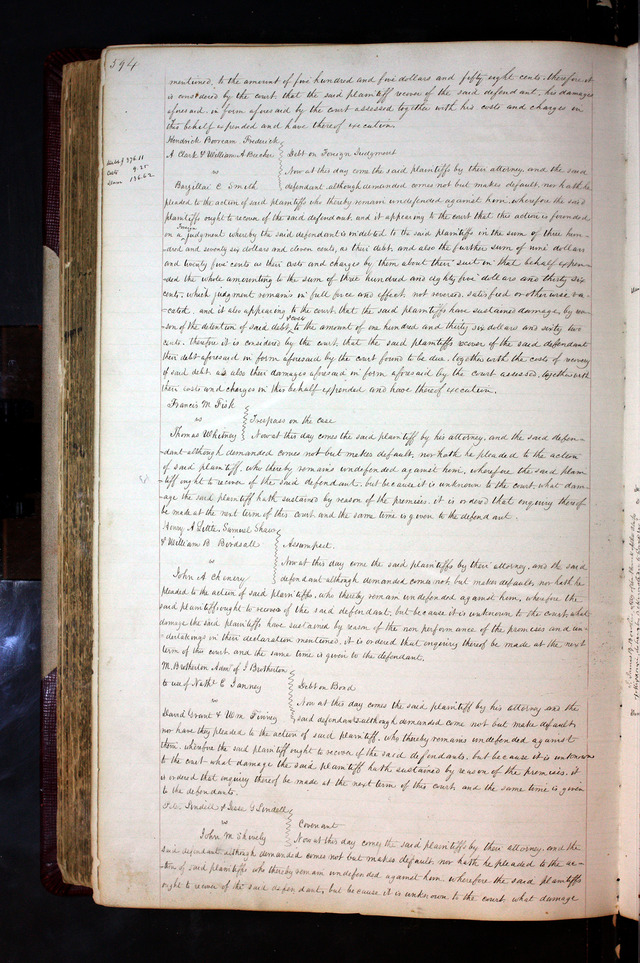 594
mentioned, to the amount of five hundred and five dollars and fifty eight cents. therefore it
is considered by the court that the said plaintiff recover of the said defendant, his damages
aforesaid in form aforesaid by the court assessed together with his costs and charges in
this behalf expended and have thereof execution.
Hendrick Booraem Frederick
A Clark & William A Beecher
Debt on Foreign Judgment
vs
Now at this day come the said plaintiffs by their attorney, and the said
Barzillai C Smith
defendant although demanded comes not but makes default, nor hath he
Debt $376.11
Costs 9.25
136.62
pleaded to the action of said plaintiffs who thereby remain undefended against him, wherefore the said
plaintiffs ought to recover of the said defendant, and it appearing to the court that this action is founded
on a foreign judgment whereby the said defendant is indebted to the said plaintiffs in the sum of three hun-
dred and seventy six dollars and eleven cents, as their debt, and also the further sum of nine dollars
and twenty five cents as their costs and charges by them about their suit in that behalf expen-
ded the whole amounting to the sum of three hundred and eighty five dollars and thirty six
cents, which judgment remains in full force and effect, not reversed, satisfied or otherwise va-
cated, and it also appearing to the court, that the said plaintiffs have sustained damage, by rea-
son of the detention of said debt, & costs to the amount of one hundred and thirty six dollars and sixty two
cents. therefore it is considered by the court that the said plaintiffs recover of the said defendant
their debt aforesaid in form aforesaid by the court found to be due, together with the costs of recovery
of said debt, as also their damages aforesaid in form aforesaid by the court assessed, together with
their costs and charges in this behalf expended and have thereof execution.
Francis M Fisk
vs
Trespass on the case
Thomas Whitney
Now at this day comes the said plaintiff by his attorney, and the said defen-
dant although demanded comes not but makes default, nor hath he pleaded to the action
of said plaintiff, who thereby remains undefended against him, wherefore the said plain-
tiff ought to recover of the said defendant, but because it is unknown to the court what dam-
age the said plaintiff hath sustained by reason of the premises, it is ordered that enquiry thereof
be made at the next term of this court and the same time is given to the defendant.
Henry A Little, Samuel Shaw
& William B Birdsall
Assumpsit.
vs
Now at this day come the said plaintiffs by their attorney, and the said
John A Chenery
defendant although demanded comes not, but makes default, nor hath he
pleaded to the action of said plaintiffs, who thereby remain undefended against him, wherefore the
said plaintiffs ought to recover of the said defendant, but because it is unknown to the court, what
damage the said plaintiffs have sustained by reason of the non performance of the promises and un-
dertakings in their declaration mentioned, it is ordered that enquiry thereof be made at the next
term of this court and the same time is given to the defendant.
M. Brotherton Admr of J Brotherton
to use of Nathl E Janney
Debt on Bond
vs
Now at this day comes the said plaintiff by his attorney and the
David Grant & Wm Finney
said defendants although demanded come not but make default,
nor have they pleaded to the action of said plaintiff, who thereby remains undefended against
them, wherefore the said plaintiff ought to recover of the said defendants, but because it is unknown
to the court what damage the said plaintiff hath sustained by reason of the premises, it
is ordered that enquiry thereof be made at the next term of this court and the same time is given
to the defendants.
Lindell & Jesse G Lindell
vs
Covenant
John M Shively
Now at this day come the said plaintiffs by their attorney, and the
said defendant although demanded comes not but makes default, nor hath he pleaded to the ac-
tion of said plaintiffs who thereby remain undefended against him wherefore the said plaintiffs
ought to recover of the said defendant, but because it is unknown to the court, what damage